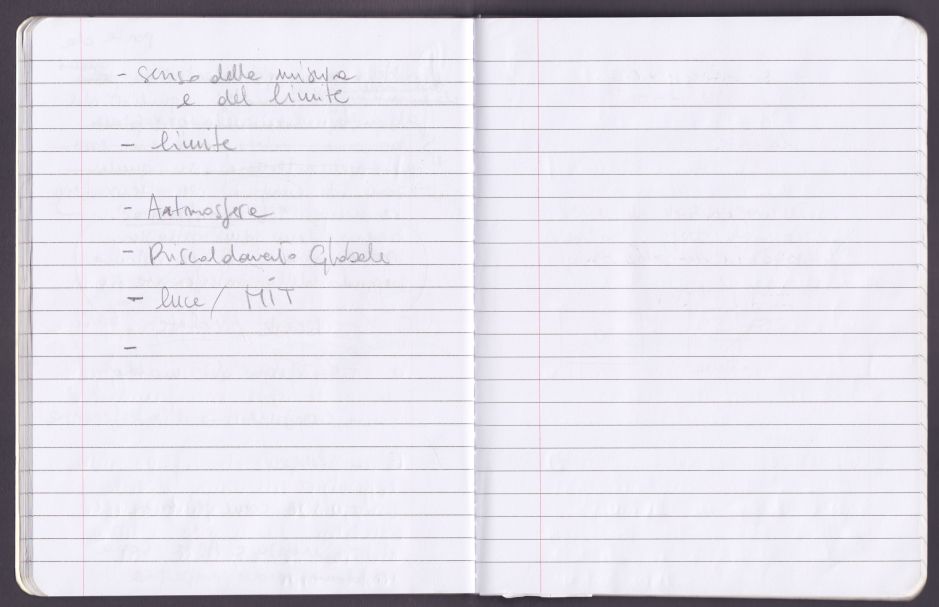 - senso della misura
e del limite
- limite
- Aatmosfera
- Riscaldamento Globale
- luce / MIT
-